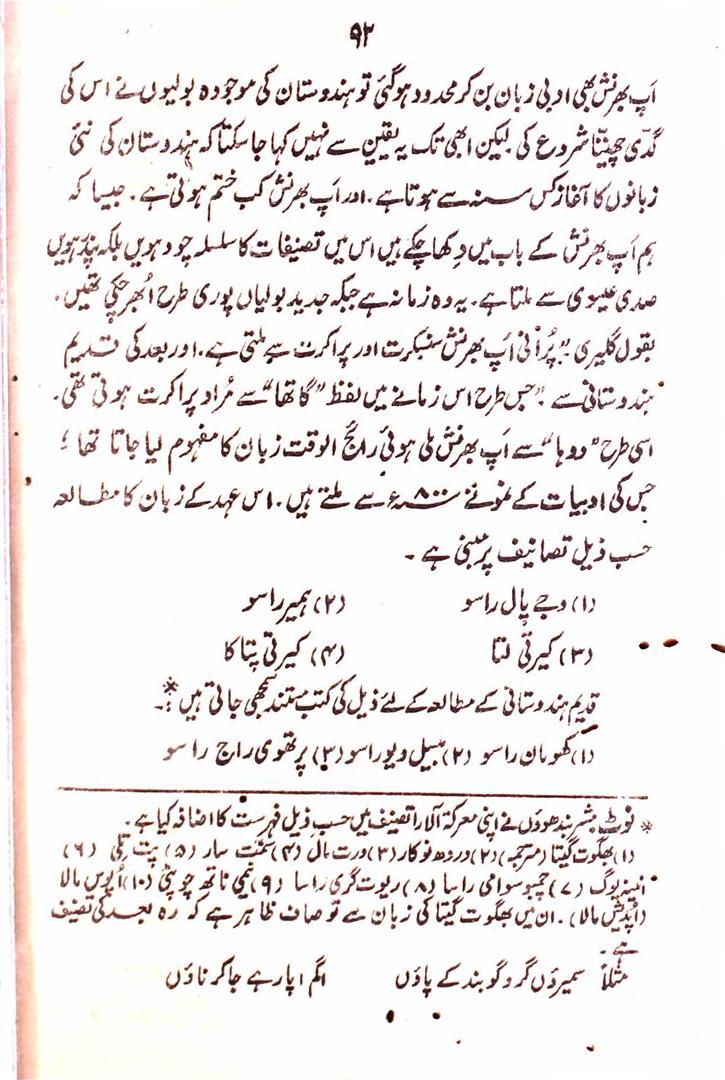 ۹۲
اَپ بھرنش بھی ادبی زبان بن کر محدود ہوگئی تو ہندوستان کی موجودہ بولیوں نے اس کی
گدّی چھیننا شروع کی لیکن ابھی تک یہ یقین سے نہیں کہا جاسکتا کہ ہندوستان کی نئی
زبانوں کا آغاز کس سنہ سے ہوتا ہے۔ اور اَپ بھرنش کب ختم ہوتی ہے۔ جیسا کہ
ہم اَپ بھرنش کے باب میں دکھا چکے ہیں اس میں تصنیفات کا سلسلہ چودہویں بلکہ پندرہویں
صدی عیسوی سے ملتا ہے۔ یہ وہ زمانہ ہے جبکہ جدید بولیاں پوری طرح اُبھر چکی تھیں۔
بقول گلیری :"پُرانی اَپ بھرنش سنسکرت اور پراکرت سے ملتی ہے۔ اور بعد کی قدیم
ہندوستانی سے"۔ جس طرح اس زمانے میں لفظ "گاتھا" سے مُراد پراکرت ہوتی تھی۔
اسی طرح "دوہا" سے اَپ بھرنش ملی ہوئی رائج الوقت زبان کا مفہوم لیا جاتا تھا ؛
جس کی ادبیات کے نمونے ۸۰۰ء سے ملتے ہیں۔ اس عہد کے زبان کا مطالعہ
حسب ذیل تصانیف پر مبنی ہے۔
(۱) وجے پال راسو (۲) ہمیر راسو
(۳) کیرتی لتا (۴) کیرتی پتاکا
قدیم ہندوستانی کے مطالعہ کے لئے ذیل کی کتب مستند سمجھی جاتی ہیں *:۔
(۱) کھومان راسو (۲) بیسل دیو راسو (۳) پرتھوی راج راسو
* نوٹ۔ مشر بندھوؤں نے اپنی معرکۃ الآرا تصنیف میں حسب ذیل فہرست کا اضافہ کیا ہے۔
(۱) بھگوت گیتا (مترجمہ) (۲) وردھ نوکار (۳) ورت مال (۴) سمّت سار (۵) پت تلی (۶)
انینہ یوگ (۷) جمبو سوامی راسا (۸) ریوت گری راسا (۹) نیمی ناتھ چوپئی (۱۰) اُپوس مالا
(اُپدیش مالا)۔ ان میں بھگوت گیتا کی زبان سے تو صاف ظاہر ہے کہ وہ بعد کی تصنیف
ہے۔
مثلاً سمیرؤں گرو گوبند کے پاؤں اگم اپار ہے جا کر ناؤں